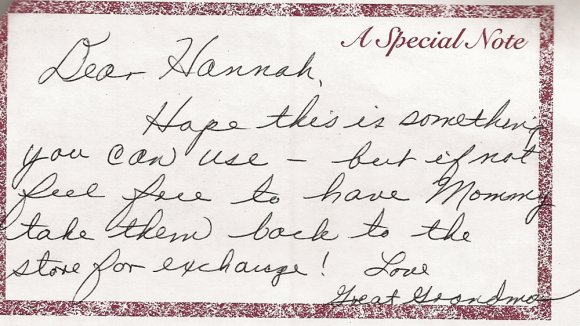 A Special Note
Dear Hannah,
Hope this is something
you can use – but if not
feel free to have Mommy
take them back to the
store for exchange! Love
Great Grandma